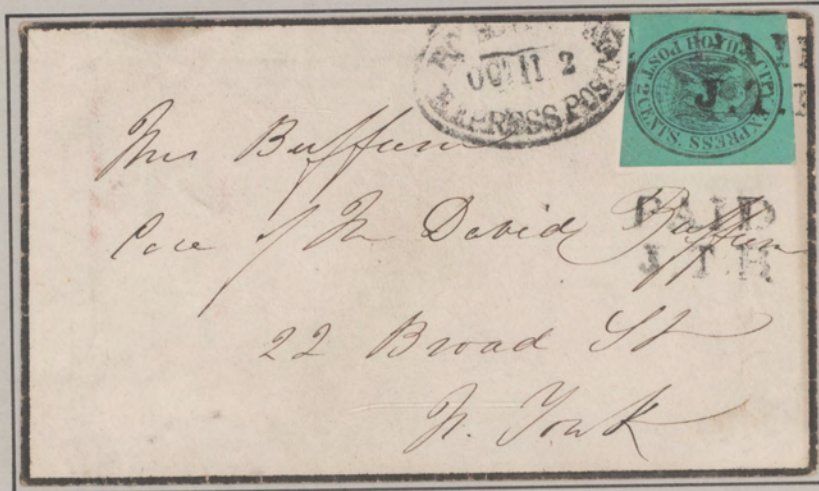 OCT 11 2
EXPRESS POST
CITY EXPRESS POST. 2 CENTS.
J.
PAID
J. T. B.
Mrs Buffum
Care of Mr David Buffum
22 Broad St
N. York